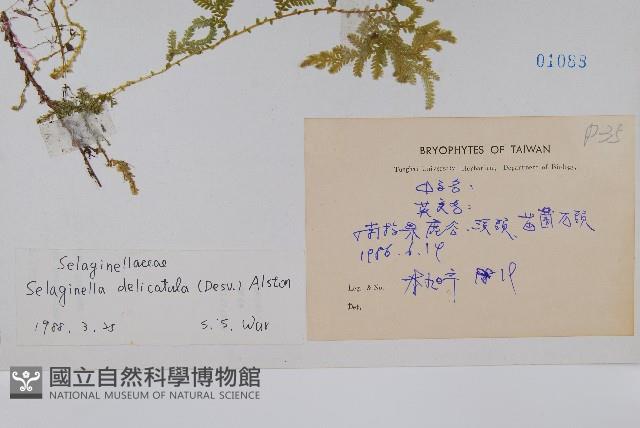 01088
P-35
BRYOPHYTES OF TAIWAN
Tunghai University Herbarium, Department of Biology.
中文名:
英文名:
南投県鹿谷、頭
1986.6.14
Leg. & No. 19
Det.
Selaginellaceae
Selaginella delicatula (Desv.) Alston
1988. 3. 28
S. S. War
國立自然科學博物館
NATIONAL MUSEUM OF NATURAL SCIENCE